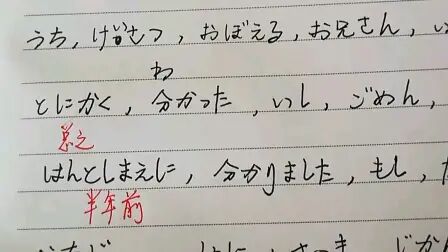 うち，けいさつ，おぼえる，お兄さん，い
わ
とにかく，分かった，いし，ごめん，
总之
はんとしまえに，分かりました，もし，た
半年前